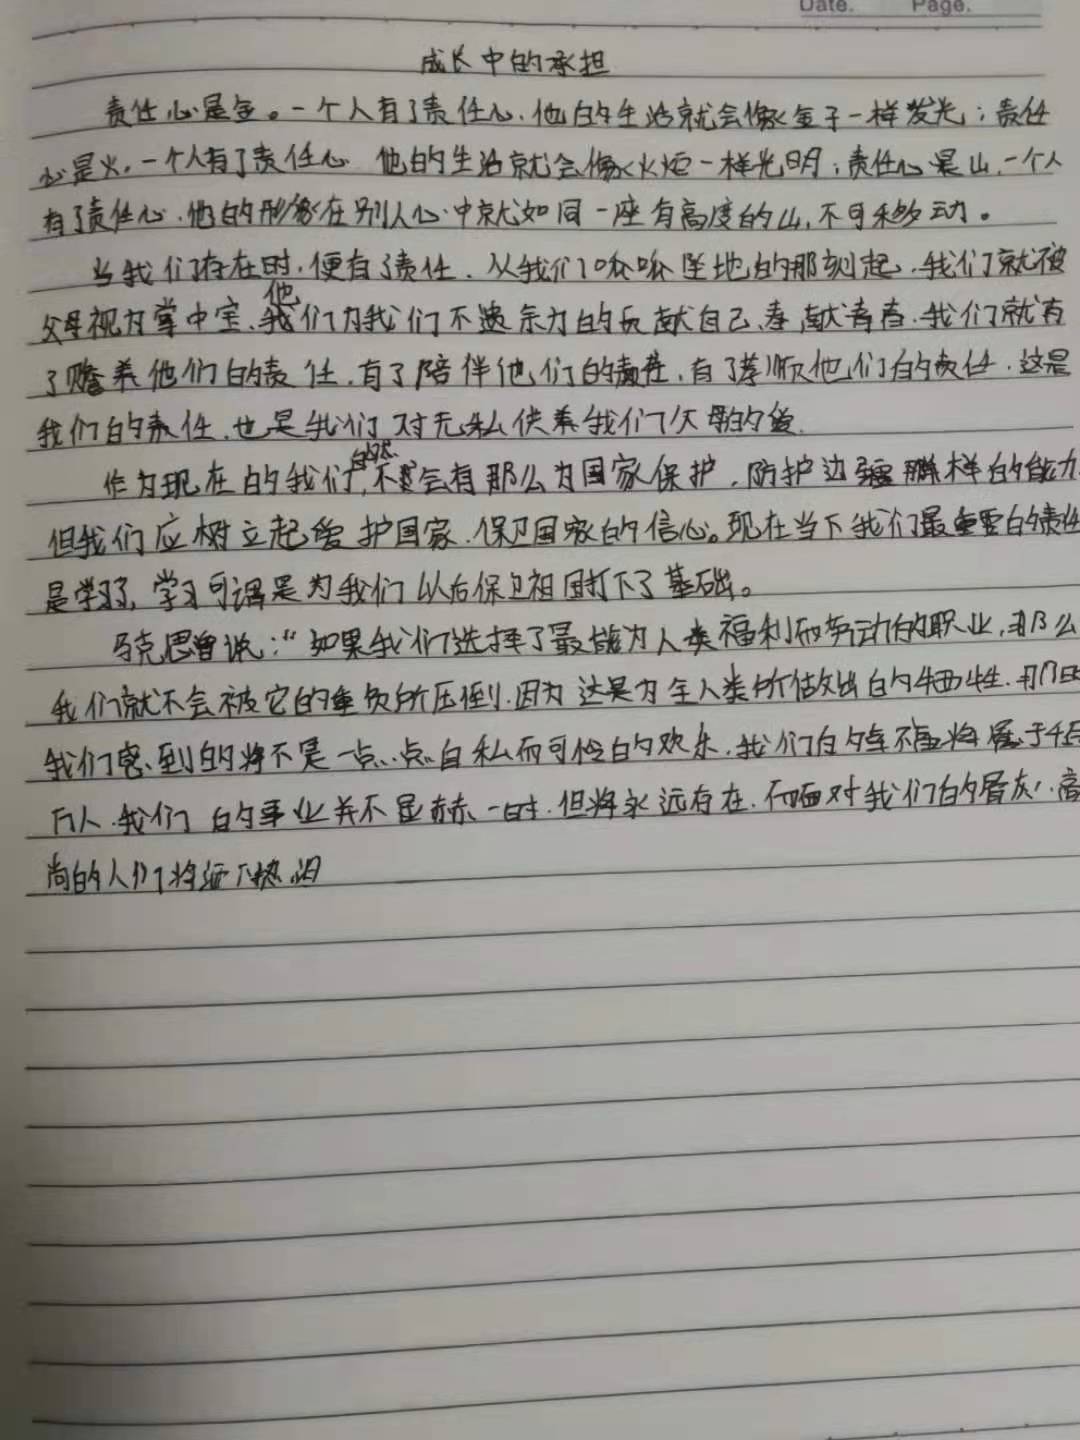 Date.    Page.
成长中的承担
责任心是金。一个人有了责任心,他的生活就会像金子一样发光;责任
心是火,一个人有了责任心 他的生活就会像火炬一样光明;责任心是山,一个人
有了责任心,他的形象在别人心中就如同一座有高度的山,不可移动。
当我们存在时,便有了责任,从我们呱呱坠地的那刻起,我们就被
父母视为掌中宝,他们为我们不遗余力的贡献自己,奉献青春,我们就有
了赡养他们的责任,有了陪伴他们的责任,有了孝顺他们的责任,这是
我们的责任,也是我们对无私供养我们父母的爱.
作为现在的我们,自然不会有那么为国家保护,防护边疆那样的能力
但我们应树立起爱护国家,保卫国家的信心。现在当下我们最重要的责任
是学习了,学习可谓是为我们以后保卫祖国打下了基础。
马克思曾说:“如果我们选择了最能为人类福利而劳动的职业,那么
我们就不会被它的重负所压倒,因为这是为全人类所做出的牺牲,那时
我们感到的将不是一点点自私而可怜的欢乐,我们的幸福将属于千百
万人,我们的事业并不显赫一时,但将永远存在,而面对我们的骨灰,高
尚的人们将洒下热泪